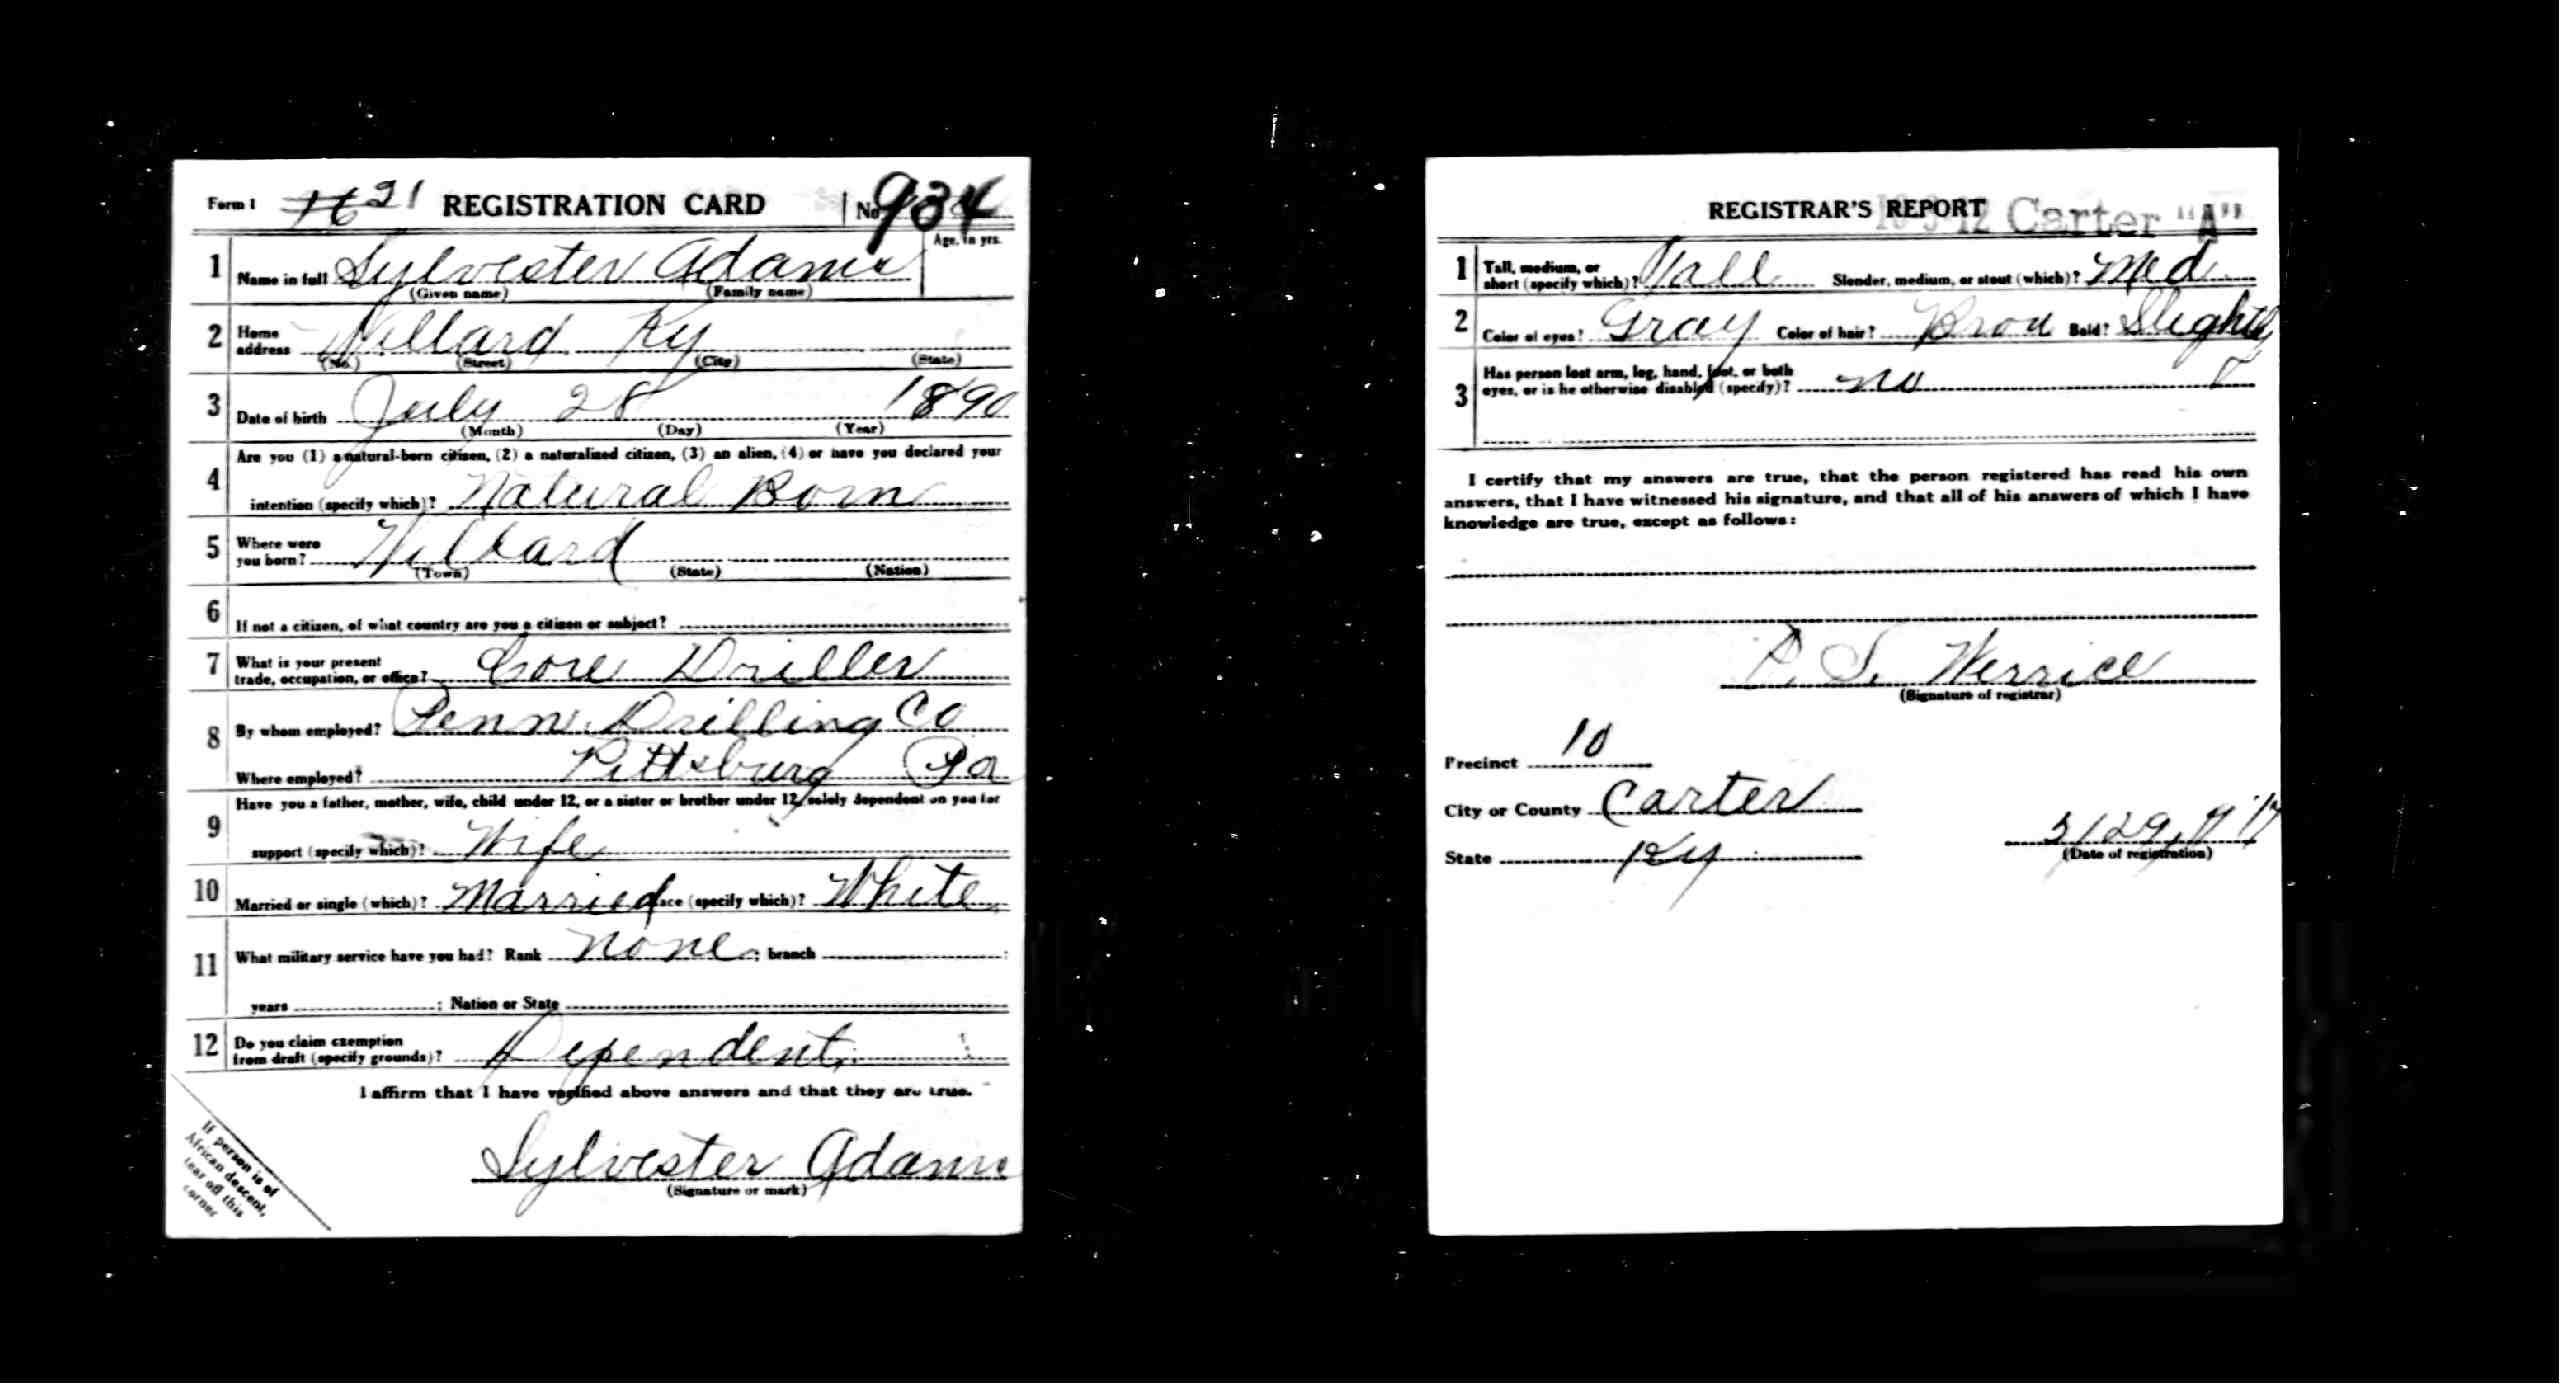 Form 1 21 REGISTRATION CARD No 934
Age, in yrs.
1 Name in full Sylvester Adams
(Given name) (Family name)
2 Home address Willard Ky
(No.) (Street) (City) (State)
3 Date of birth July 28 1890
(Month) (Day) (Year)
4 Are you (1) a natural-born citizen, (2) a naturalized citizen, (3) an alien, (4) or have you declared your
intention (specify which)? Natural Born
5 Where were you born? Willard
(Town) (State) (Nation)
6 If not a citizen, of what country are you a citizen or subject?
7 What is your present trade, occupation, or office? Core Driller
8 By whom employed? Penn. Drilling Co
Where employed? Pittsburg Pa
9 Have you a father, mother, wife, child under 12, or a sister or brother under 12, solely dependent on you for
support (specify which)? Wife
10 Married or single (which)? Married Race (specify which)? White
11 What military service have you had? Rank None; branch
years ; Nation or State
12 Do you claim exemption from draft (specify grounds)? Dependent
I affirm that I have verified above answers and that they are true.
Sylvester Adams
(Signature or mark)
If person is of
African descent,
tear off this
corner
REGISTRAR'S REPORT
Carter "A"
1 Tall, medium, or short (specify which)? Tall Slender, medium, or stout (which)? Med
2 Color of eyes? Gray Color of hair? Brou Bald? Slightly
3 Has person lost arm, leg, hand, foot, or both
eyes, or is he otherwise disabled (specify)? no
I certify that my answers are true, that the person registered has read his own
answers, that I have witnessed his signature, and that all of his answers of which I have
knowledge are true, except as follows:
(Signature of registrar)
Precinct 10
City or County Carter
State Ky
(Date of registration)